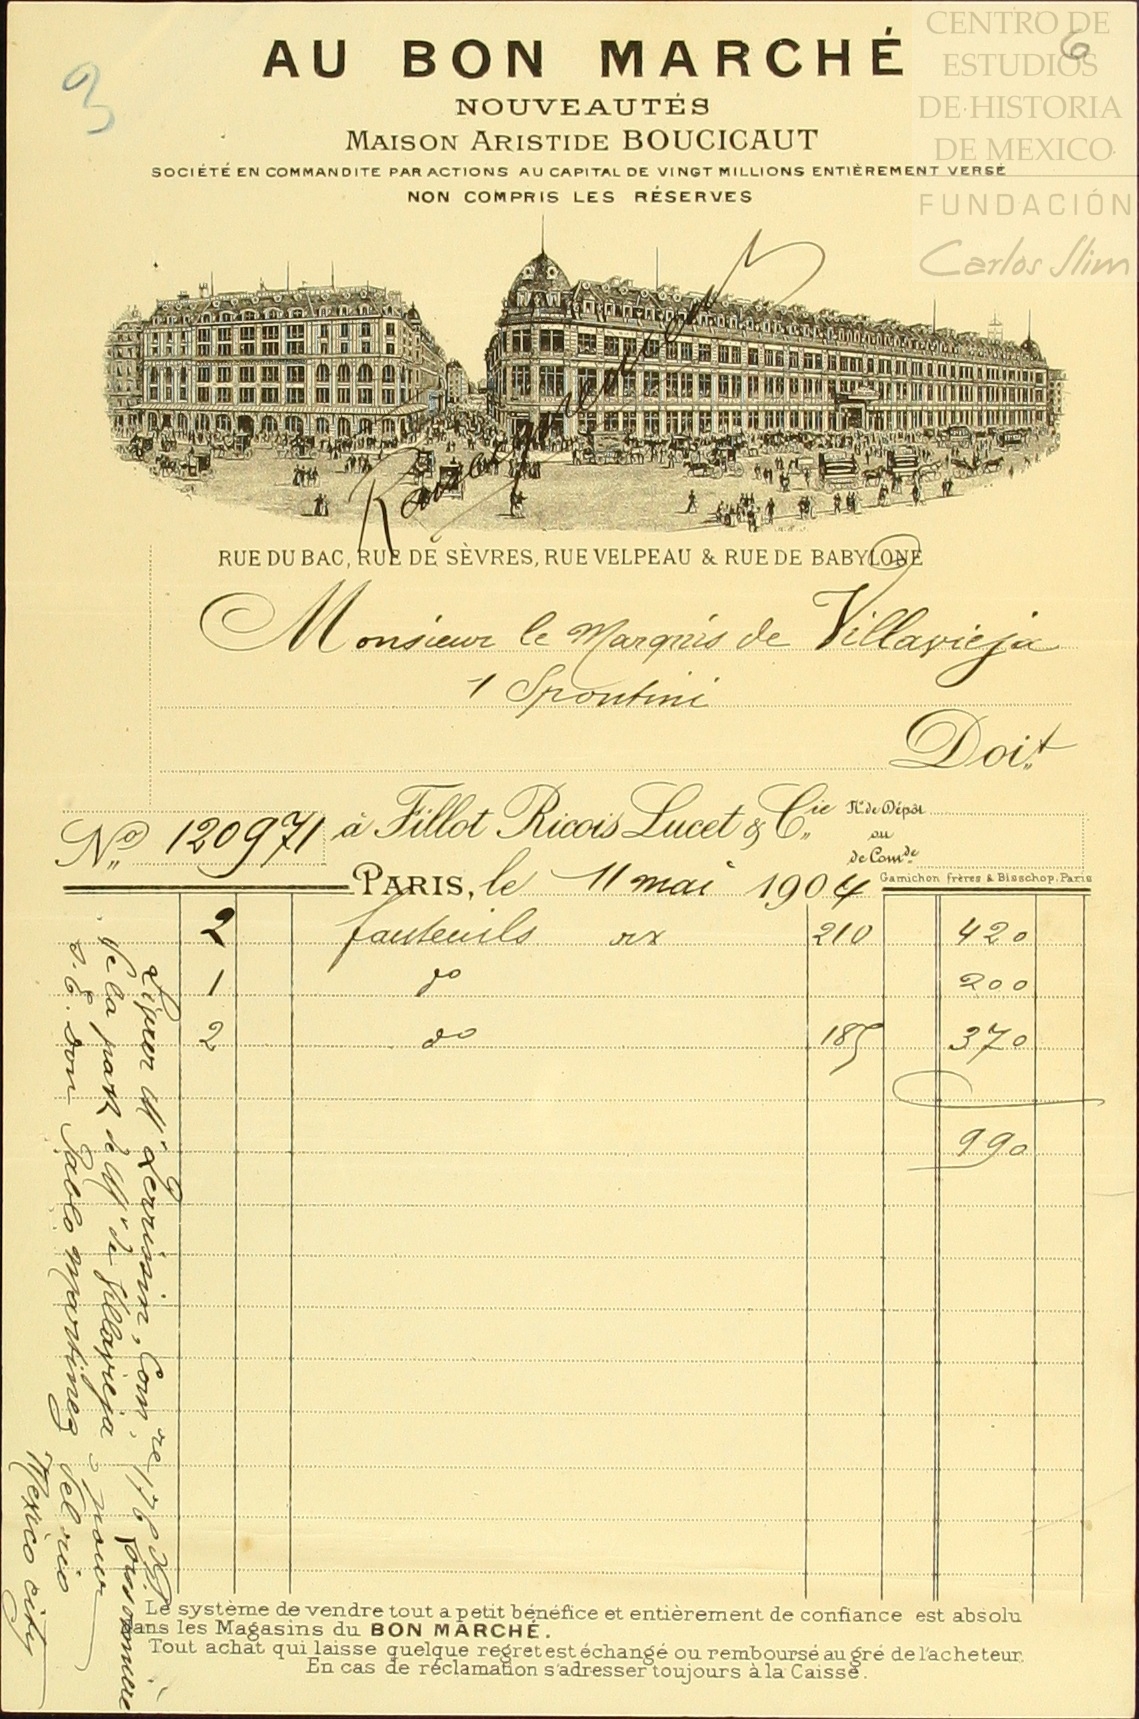 CENTRO DE
ESTUDIOS
DE HISTORIA
DE MEXICO
FUNDACIÓN
Carlos Slim
3
6
AU BON MARCHÉ
NOUVEAUTÉS
MAISON ARISTIDE BOUCICAUT
SOCIÉTÉ EN COMMANDITE PAR ACTIONS AU CAPITAL DE VINGT MILLIONS ENTIÈREMENT VERSÉ
NON COMPRIS LES RÉSERVES
RUE DU BAC, RUE DE SÈVRES, RUE VELPEAU & RUE DE BABYLONE
Monsieur le Marquis de Villavieja
1 Spontini
Doit
No 120971 à Fillot Ricois Lucet & Cie No de Dépôt
ou
de Comde
PARIS, le 11 mai 1904
Gamichon frères & Bisschop, Paris
2 fauteuils 210 420
1 do 200
2 do 185 370
990
de la part de Mr de Villavieja pour
S. E. Don Pablo Martinez del rio
Mexico city
Le système de vendre tout a petit bénéfice et entièrement de confiance est absolu
dans les Magasins du BON MARCHÉ.
Tout achat qui laisse quelque regret est échangé ou remboursé au gré de l'acheteur.
En cas de réclamation s'adresser toujours à la Caisse.